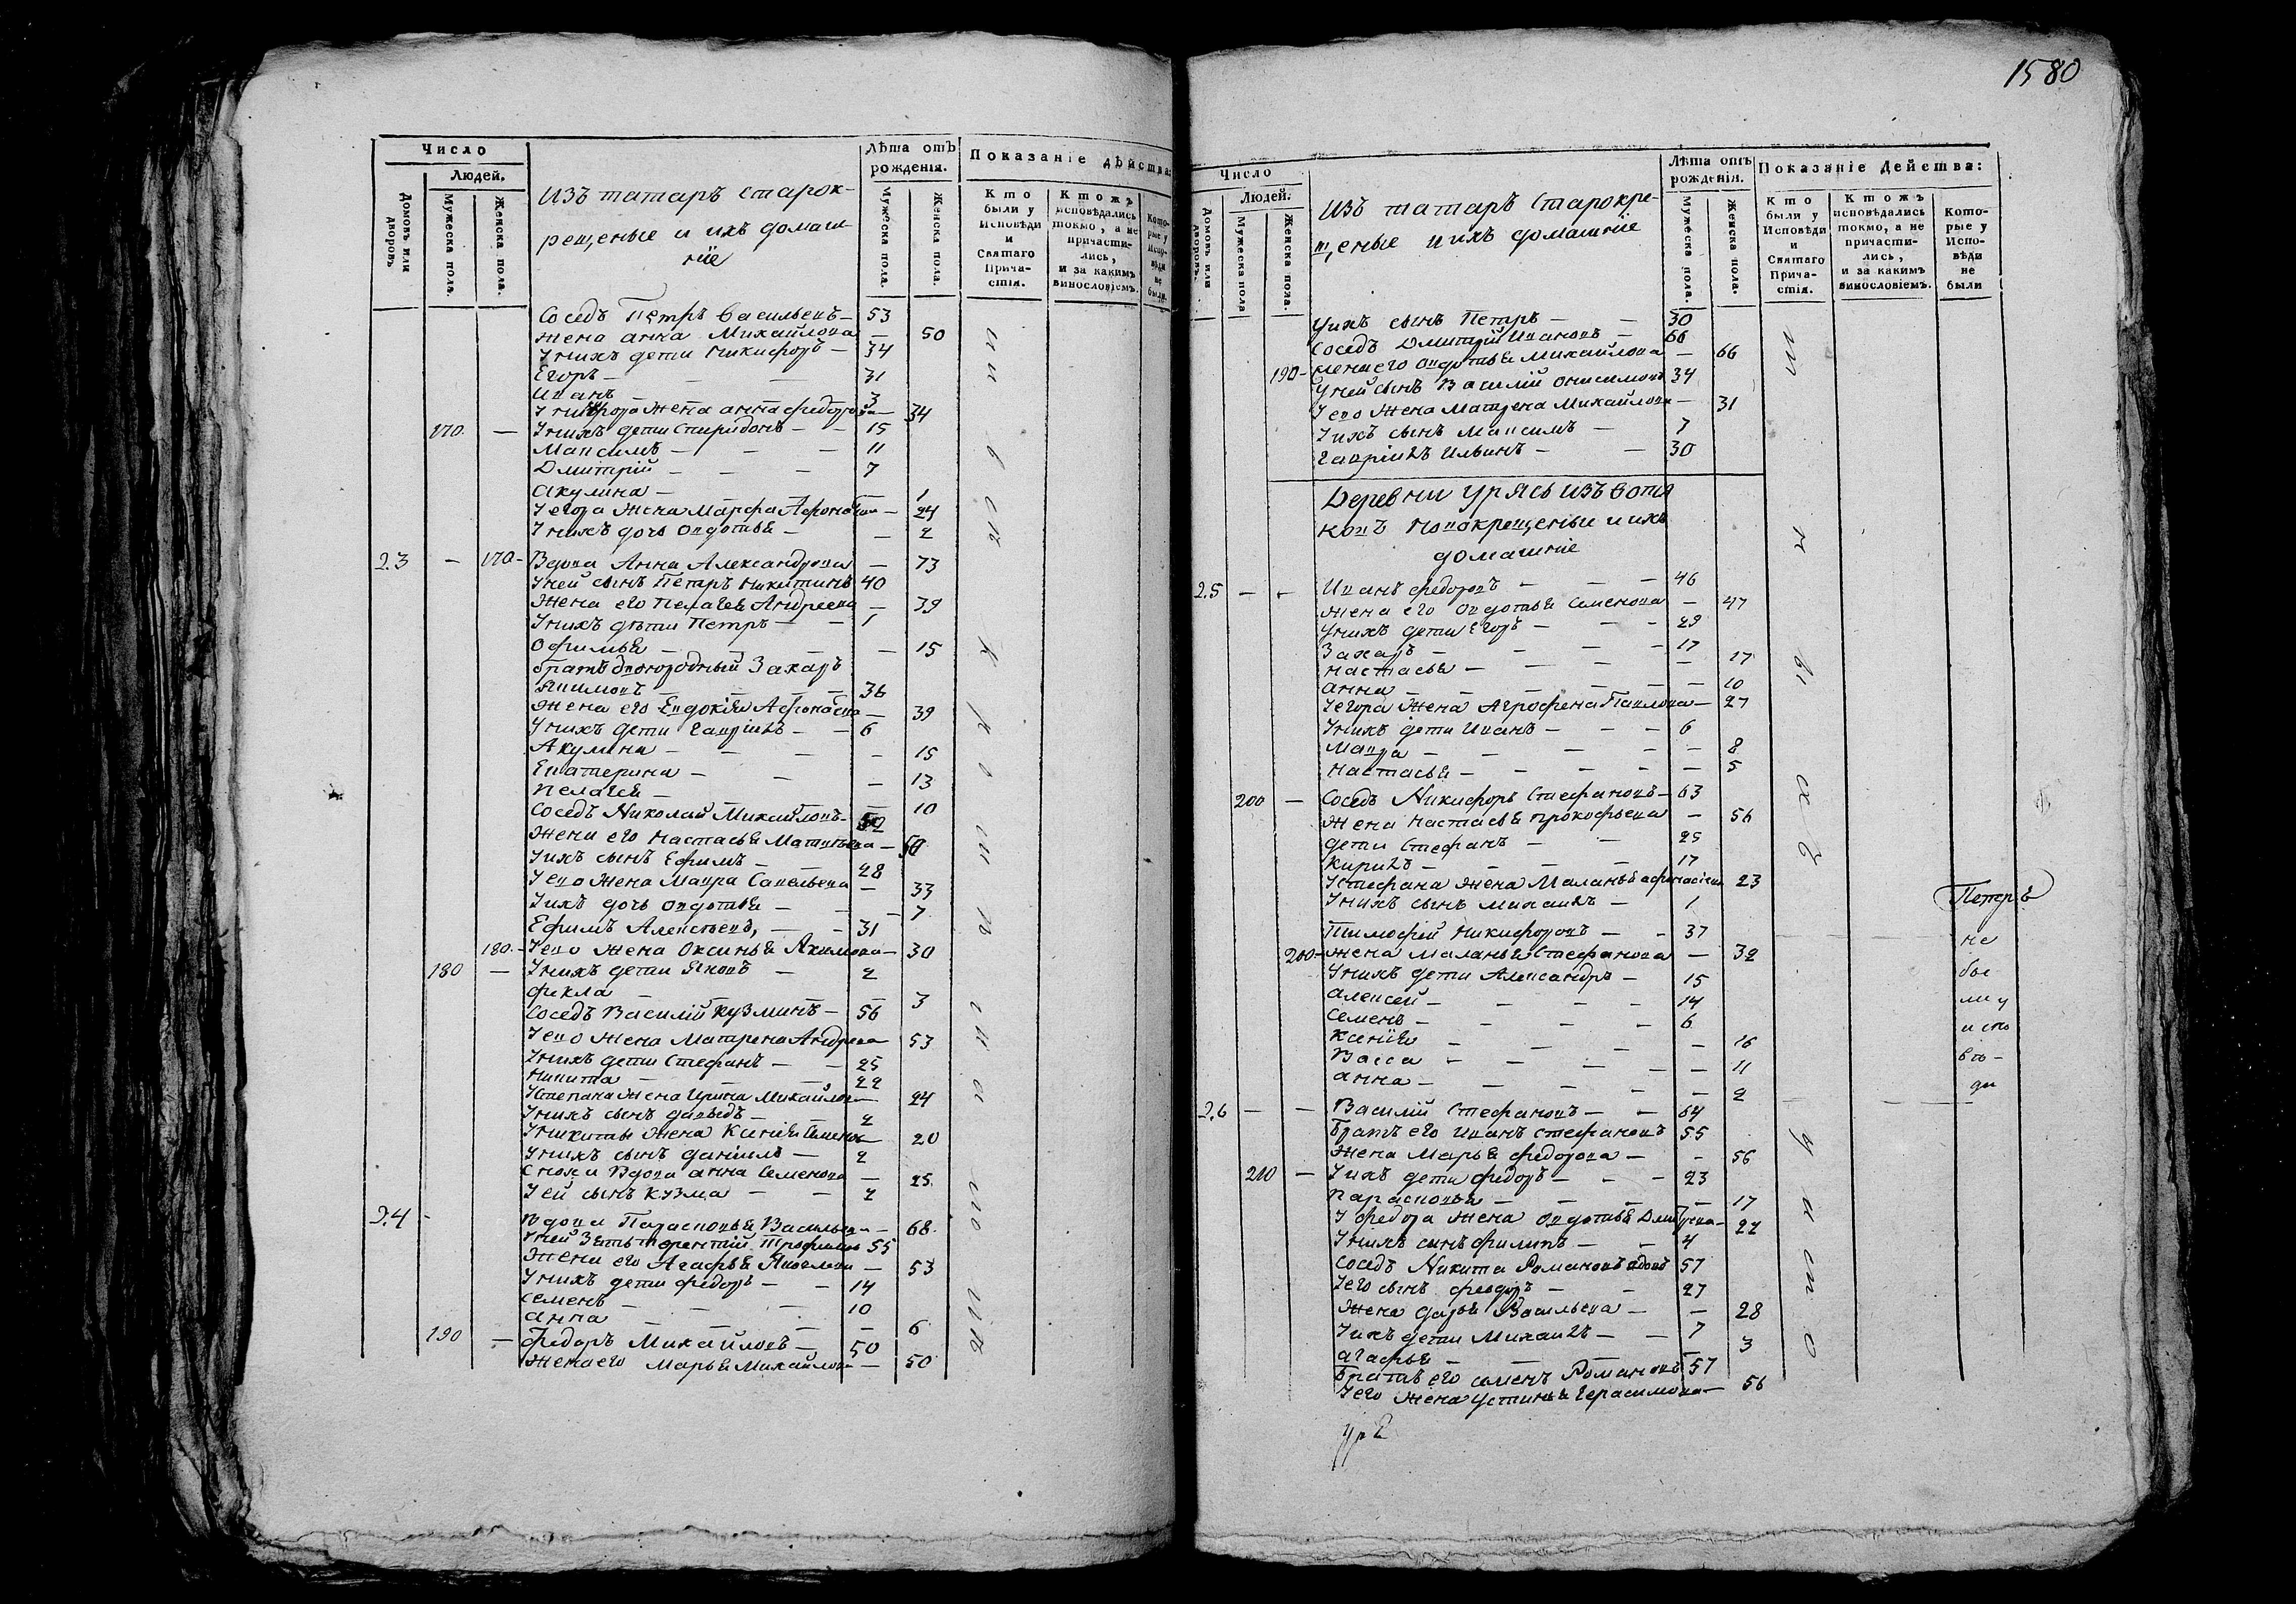 1580
Число
Людей.
Домовъ или дворовъ
Мужеска пола.
Женска пола.
Изъ татаръ старок-
рещеные и ихъ домаш-
ніе
Лѣта отъ рожденія.
Мужеска пола.
Женска пола.
Показаніе дѣйства:
Кто были у Исповѣди и Святаго Причастія.
Ктожъ исповѣдались токмо, а не причастились, и за какимъ винословіемъ.
Которые у Исповѣди не были.
Соседъ Петръ Васильевъ — 53
жена анна Михайлова — 50
У нихъ дети Никифоръ — 34
Егоръ — 31
Иванъ — 3
жена анна федорова — 34
170 — У нихъ дети Спиридонъ — 15
Максимъ — 11
Дмитрій — 7
Акулина — 1
У егора жена Марфа — 24
У нихъ дочь Овдотья — 2
23 — 170 — Вдова Анна Александрова — 73
У ней сынъ Петръ Никитинъ 40
Жена его Пелагея Андреева — 39
У нихъ дѣти Петръ — 1
Офимья — 15
братъ двоюродный Захаръ
— 36
Жена его Евдокія — 39
У нихъ дети Гавріилъ — 6
Акулина — 15
Екатерина — 13
Пелагея — 10
Соседъ Николай Михайловъ —
Жена его Настасья —
У ихъ сынъ Ефимъ — 28
У ево жена Мавра Савельева — 33
У ихъ дочь Овдотья — 7
Ефимъ Алексеевъ, — 31
180 — У ево жена Оксинья Акимова — 30
180 — У нихъ дети — 2
фекла — 3
Соседъ Василій Кузминъ — 56
У ево жена Матрена Андреева 53
У нихъ дети Стефанъ — 25
Никита — 22
У Степана жена Ирина Михайлова — 24
У нихъ сынъ давыдъ — 2
У никиты жена Ксенія — 20
У нихъ сынъ даниилъ — 2
Сноха вдова анна Семенова — 25
У ей сынъ Кузма — 2
24 — Вдова Парасковья Васильева — 68
У ней Зять терентій Трофимовъ 55
Жена его Агафья Яковлева — 53
У нихъ дети федоръ — 14
семенъ — 10
анна — 6
190 — федоръ Михайловъ — 50
Жена его Марья Михайлова — 50
Число
Людей.
Домовъ или дворовъ.
Мужеска пола
Женска пола.
Изъ татаръ старокре-
щеные и ихъ домашніе
Лѣта отъ рожденія.
Мужеска пола.
Женска пола.
Показаніе Действа:
Кто были у Исповѣди и Святаго Причастія.
Ктожъ исповѣдались токмо, а не причастились, и за какимъ винословіемъ.
Которые у Исповѣди не были
У ихъ сынъ Петръ — 30
Соседъ Дмитрій Ивановъ — 66
190 — жена его Овдотья Михайлова — 66
У ней сынъ Василій 34
У ево жена Матрена Михайлова — 31
У ихъ сынъ Максимъ — 7
Гавріилъ Ильинъ — 30
Деревни Урясь изъ вотя
ковъ новокрещеные и ихъ
домашніе
25 — — Иванъ федоровъ — 46
жена его Овдотья Семенова — 47
У нихъ дети Егоръ — 29
Захаръ — 17
Настасья — 17
анна — 10
У егора жена Агрофена Павлова — 27
У нихъ дети Иванъ — 6
Мавра — 8
Настасья — 5
200 — Соседъ Никифоръ Стефановъ — 63
Жена Настасья прокофьева — 56
дети Стефанъ — 25
Кирилъ — 17
У Стефана жена Маланья 23
У нихъ сынъ Михаилъ — 1
Тимофей Никифоровъ — 37
200 — жена Маланья Стефанова — 32
У нихъ дети Александръ — 15
алексей — 14
Семенъ — 6
Ксенія — 16
Васса — 11
анна — 2
Петръ
не
бы
ли у
испо
вѣ-
ди
26 — — Василій Стефановъ — 64
Братъ его Иванъ Стефановъ 55
Жена Марья федорова — 56
210 — У ихъ дети федоръ — 23
Парасковья — 17
У федора жена Овдотья — 22
У нихъ сынъ филипъ — 4
Соседъ Никита Романовъ вдовъ 57
У его сынъ феодоръ — 27
Жена дарья Васильева — 28
У ихъ дети Михаилъ — 7
агафья — 3
Братъ его семенъ Романовъ 57
У его жена Устинья Герасимова — 56